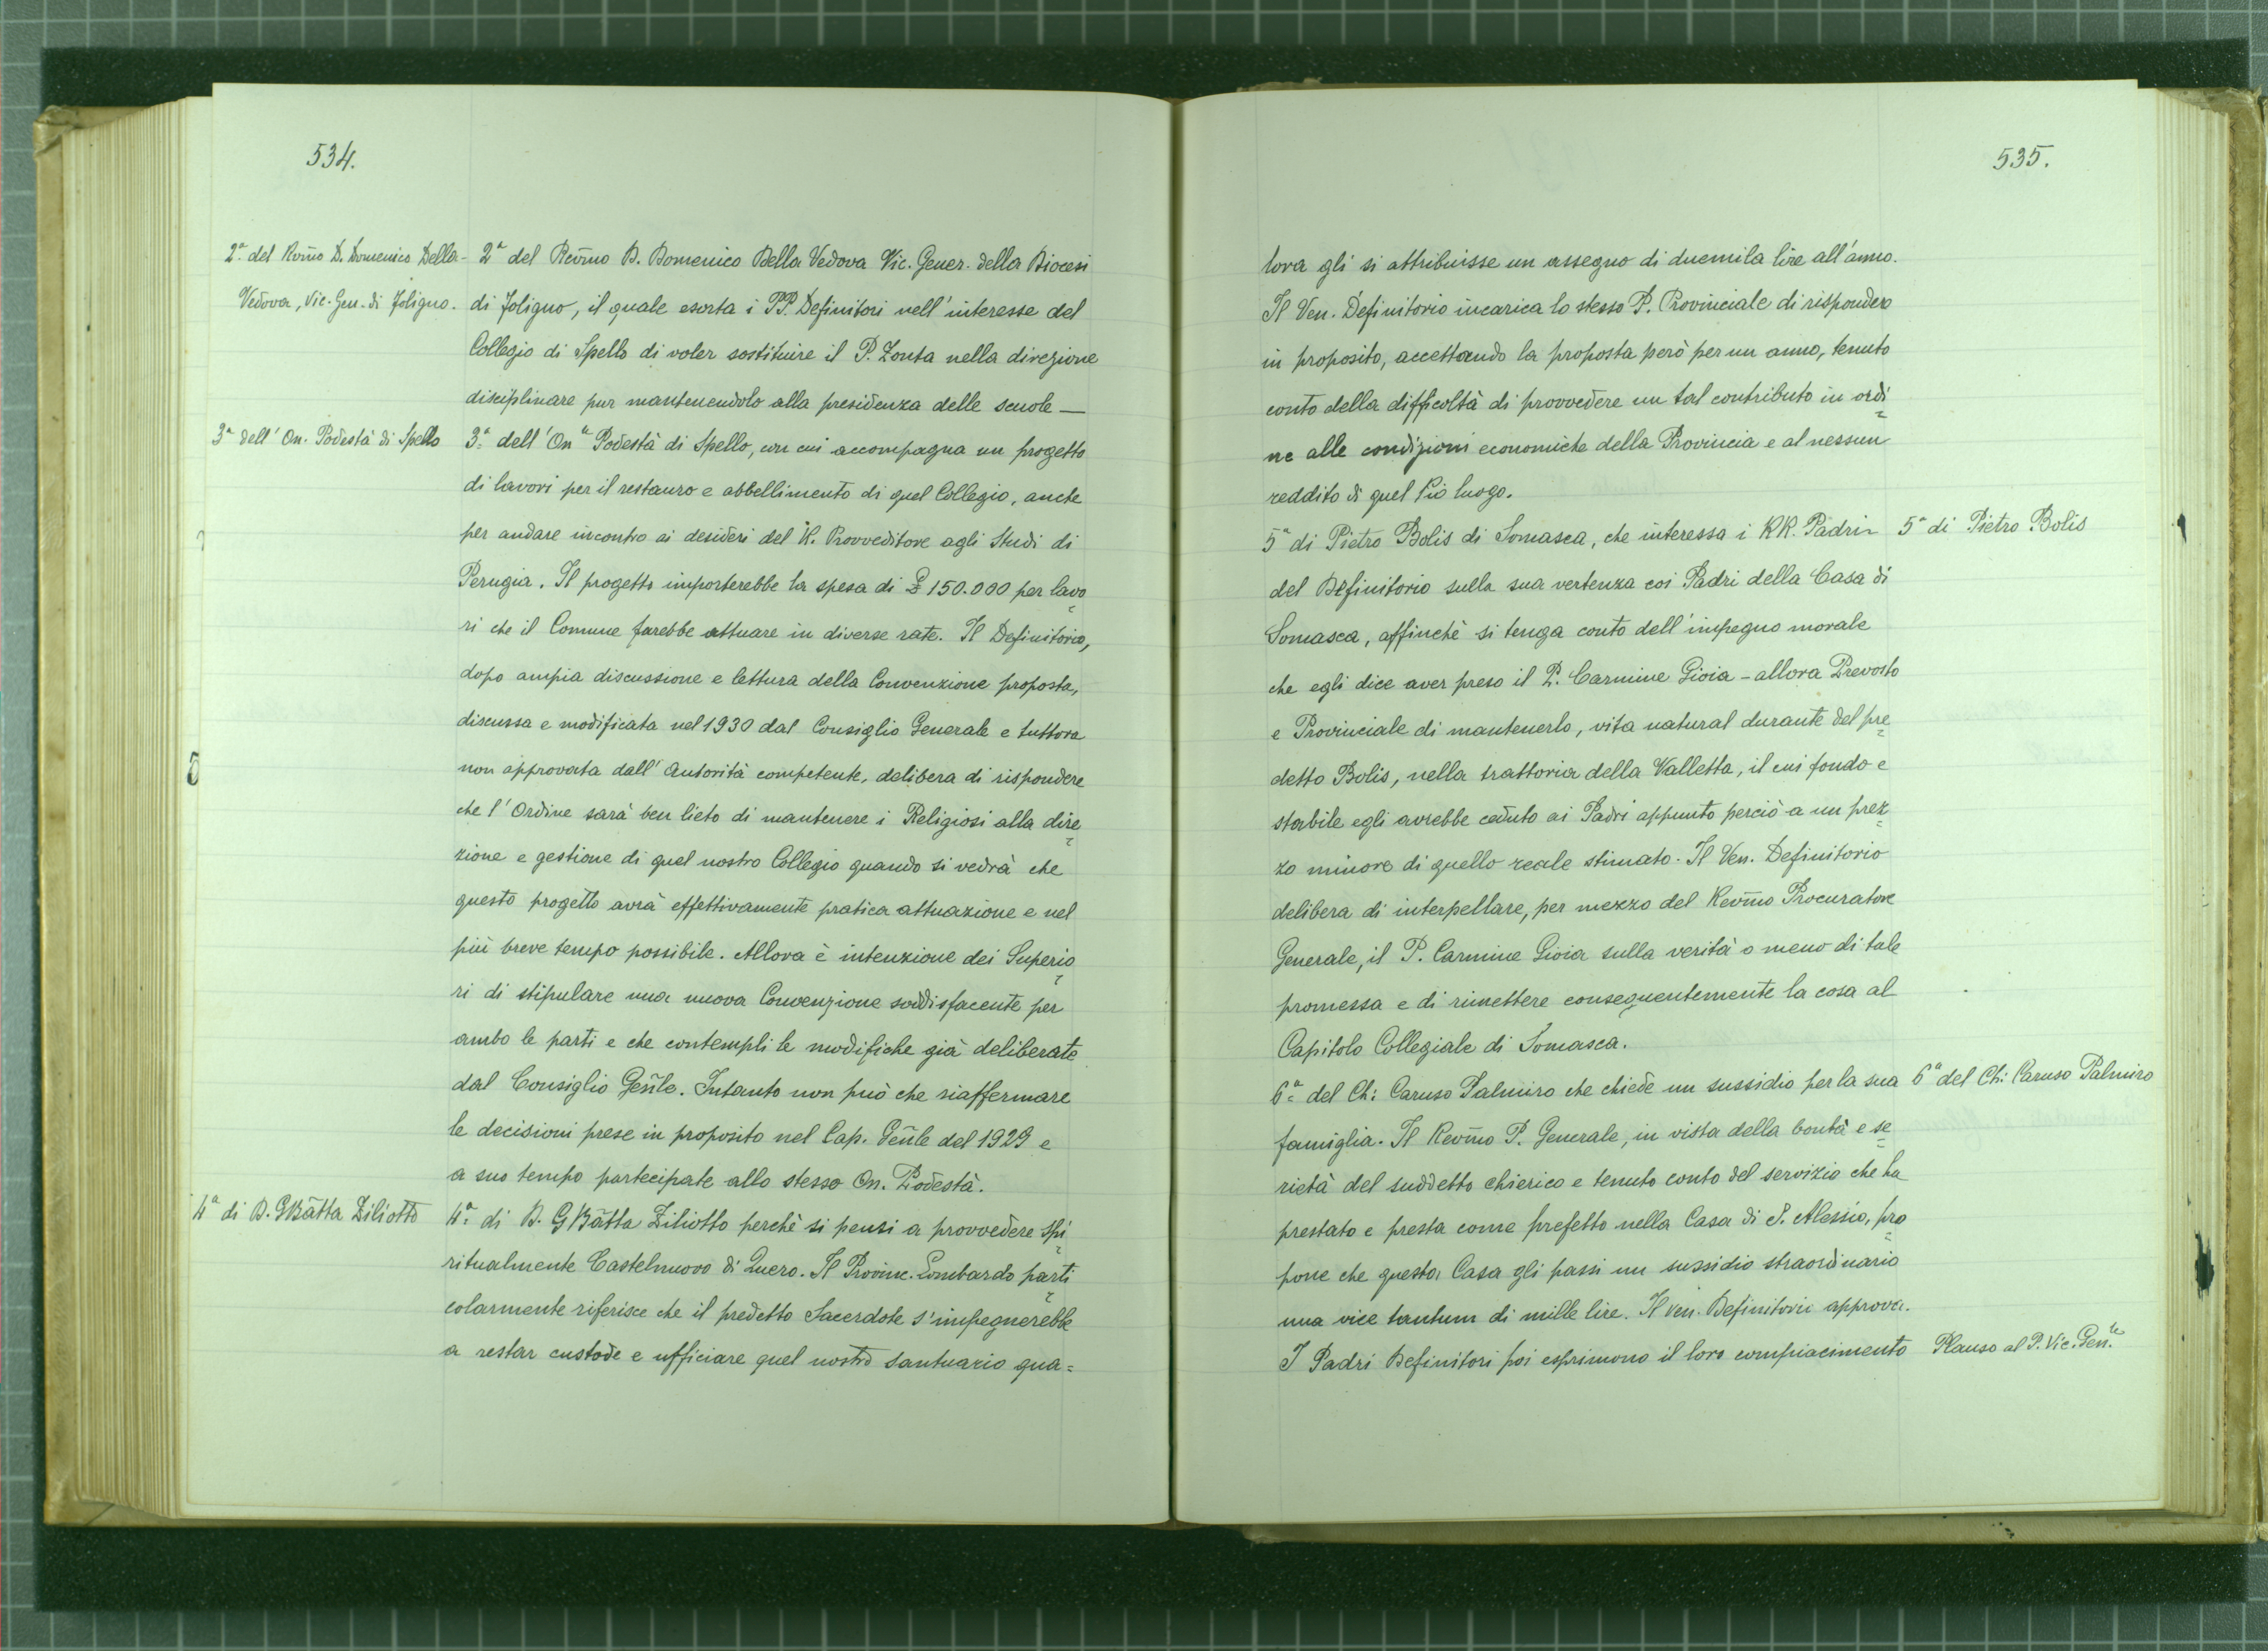 534.
2ª del Rev̄mo D. Domenico Della-
Vedova, Vic. Gen. di Foligno.
2ª del Rev̄mo D. Domenico Della Vedova Vic. Gener. della Diocesi
di Foligno, il quale esorta i PP. Definitori nell'interesse del
Collegio di Spello di voler sostituire il P. Zonta nella direzione
disciplinare pur mantenendolo alla presidenza delle scuole —
3ª dell'On. Podestà di Spello
3ª dell'Onle Podestà di Spello, con cui accompagna un progetto
di lavori per il restauro e abbellimento di quel Collegio, anche
per andare incontro ai desideri del R. Provveditore agli Studi di
Perugia. Il progetto importerebbe la spesa di £ 150.000 per lavo=
ri che il Comune farebbe attuare in diverse rate. Il Definitorio,
dopo ampia discussione e lettura della Convenzione proposta,
discussa e modificata nel 1930 dal Consiglio Generale e tuttora
non approvata dall'Autorità competente, delibera di rispondere
che l'Ordine sarà ben lieto di mantenere i Religiosi alla dire=
zione e gestione di quel nostro Collegio quando si vedrà che
questo progetto avrà effettivamente pratica attuazione e nel
più breve tempo possibile. Allora è intenzione dei Superio=
ri di stipulare una nuova Convenzione soddisfacente per
ambo le parti e che contempli le modifiche già deliberate
dal Consiglio Gen̄le. Intanto non può che riaffermare
le decisioni prese in proposito nel Cap. Gen̄le del 1929 e
a suo tempo partecipate allo stesso On. Podestà.
4ª di D. GBātta Ziliotto
4ª di D. GBātta Ziliotto perchè si pensi a provvedere spi=
ritualmente Castelnuovo di Quero. Il Provinc. Lombardo parti=
colarmente riferisce che il predetto Sacerdote s'impegnerebbe
a restar custode e ufficiare quel nostro santuario qua=
535.
lora gli si attribuisse un assegno di duemila lire all'anno.
Il Ven. Definitorio incarica lo stesso P. Provinciale di rispondere
in proposito, accettando la proposta però per un anno, tenuto
conto della difficoltà di provvedere un tal contributo in ordi=
ne alle condizioni economiche della Provincia e al nessun
reddito di quel Pio luogo.
5ª di Pietro Bolis di Somasca, che interessa i RR. Padri
5ª di Pietro Bolis
del Definitorio sulla sua vertenza coi Padri della Casa di
Somasca, affinchè si tenga conto dell'impegno morale
che egli dice aver preso il P. Carmine Gioia - allora Prevosto
e Provinciale di mantenerlo, vita natural durante del pre=
detto Bolis, nella trattoria della Valletta, il cui fondo e
stabile egli avrebbe ceduto ai Padri appunto perciò a un prez=
zo minore di quello reale stimato. Il Ven. Definitorio
delibera di interpellare, per mezzo del Rev̄mo Procuratore
Generale, il P. Carmine Gioia sulla verità o meno di tale
promessa e di rimettere conseguentemente la cosa al
Capitolo Collegiale di Somasca.
6ª del Ch: Caruso Palmiro che chiede un sussidio per la sua
6ª del Ch: Caruso Palmiro
famiglia. Il Rev̄mo P. Generale, in vista della bontà e se=
rietà del suddetto chierico e tenuto conto del servizio che ha
prestato e presta come prefetto nella Casa di S. Alessio, pro=
pone che questa Casa gli passi un sussidio straordinario
una vice tantum di mille lire. Il Ven. Definitorio approva.
I Padri Definitori poi esprimono il loro compiacimento
Plauso al P. Vic. Gen.le